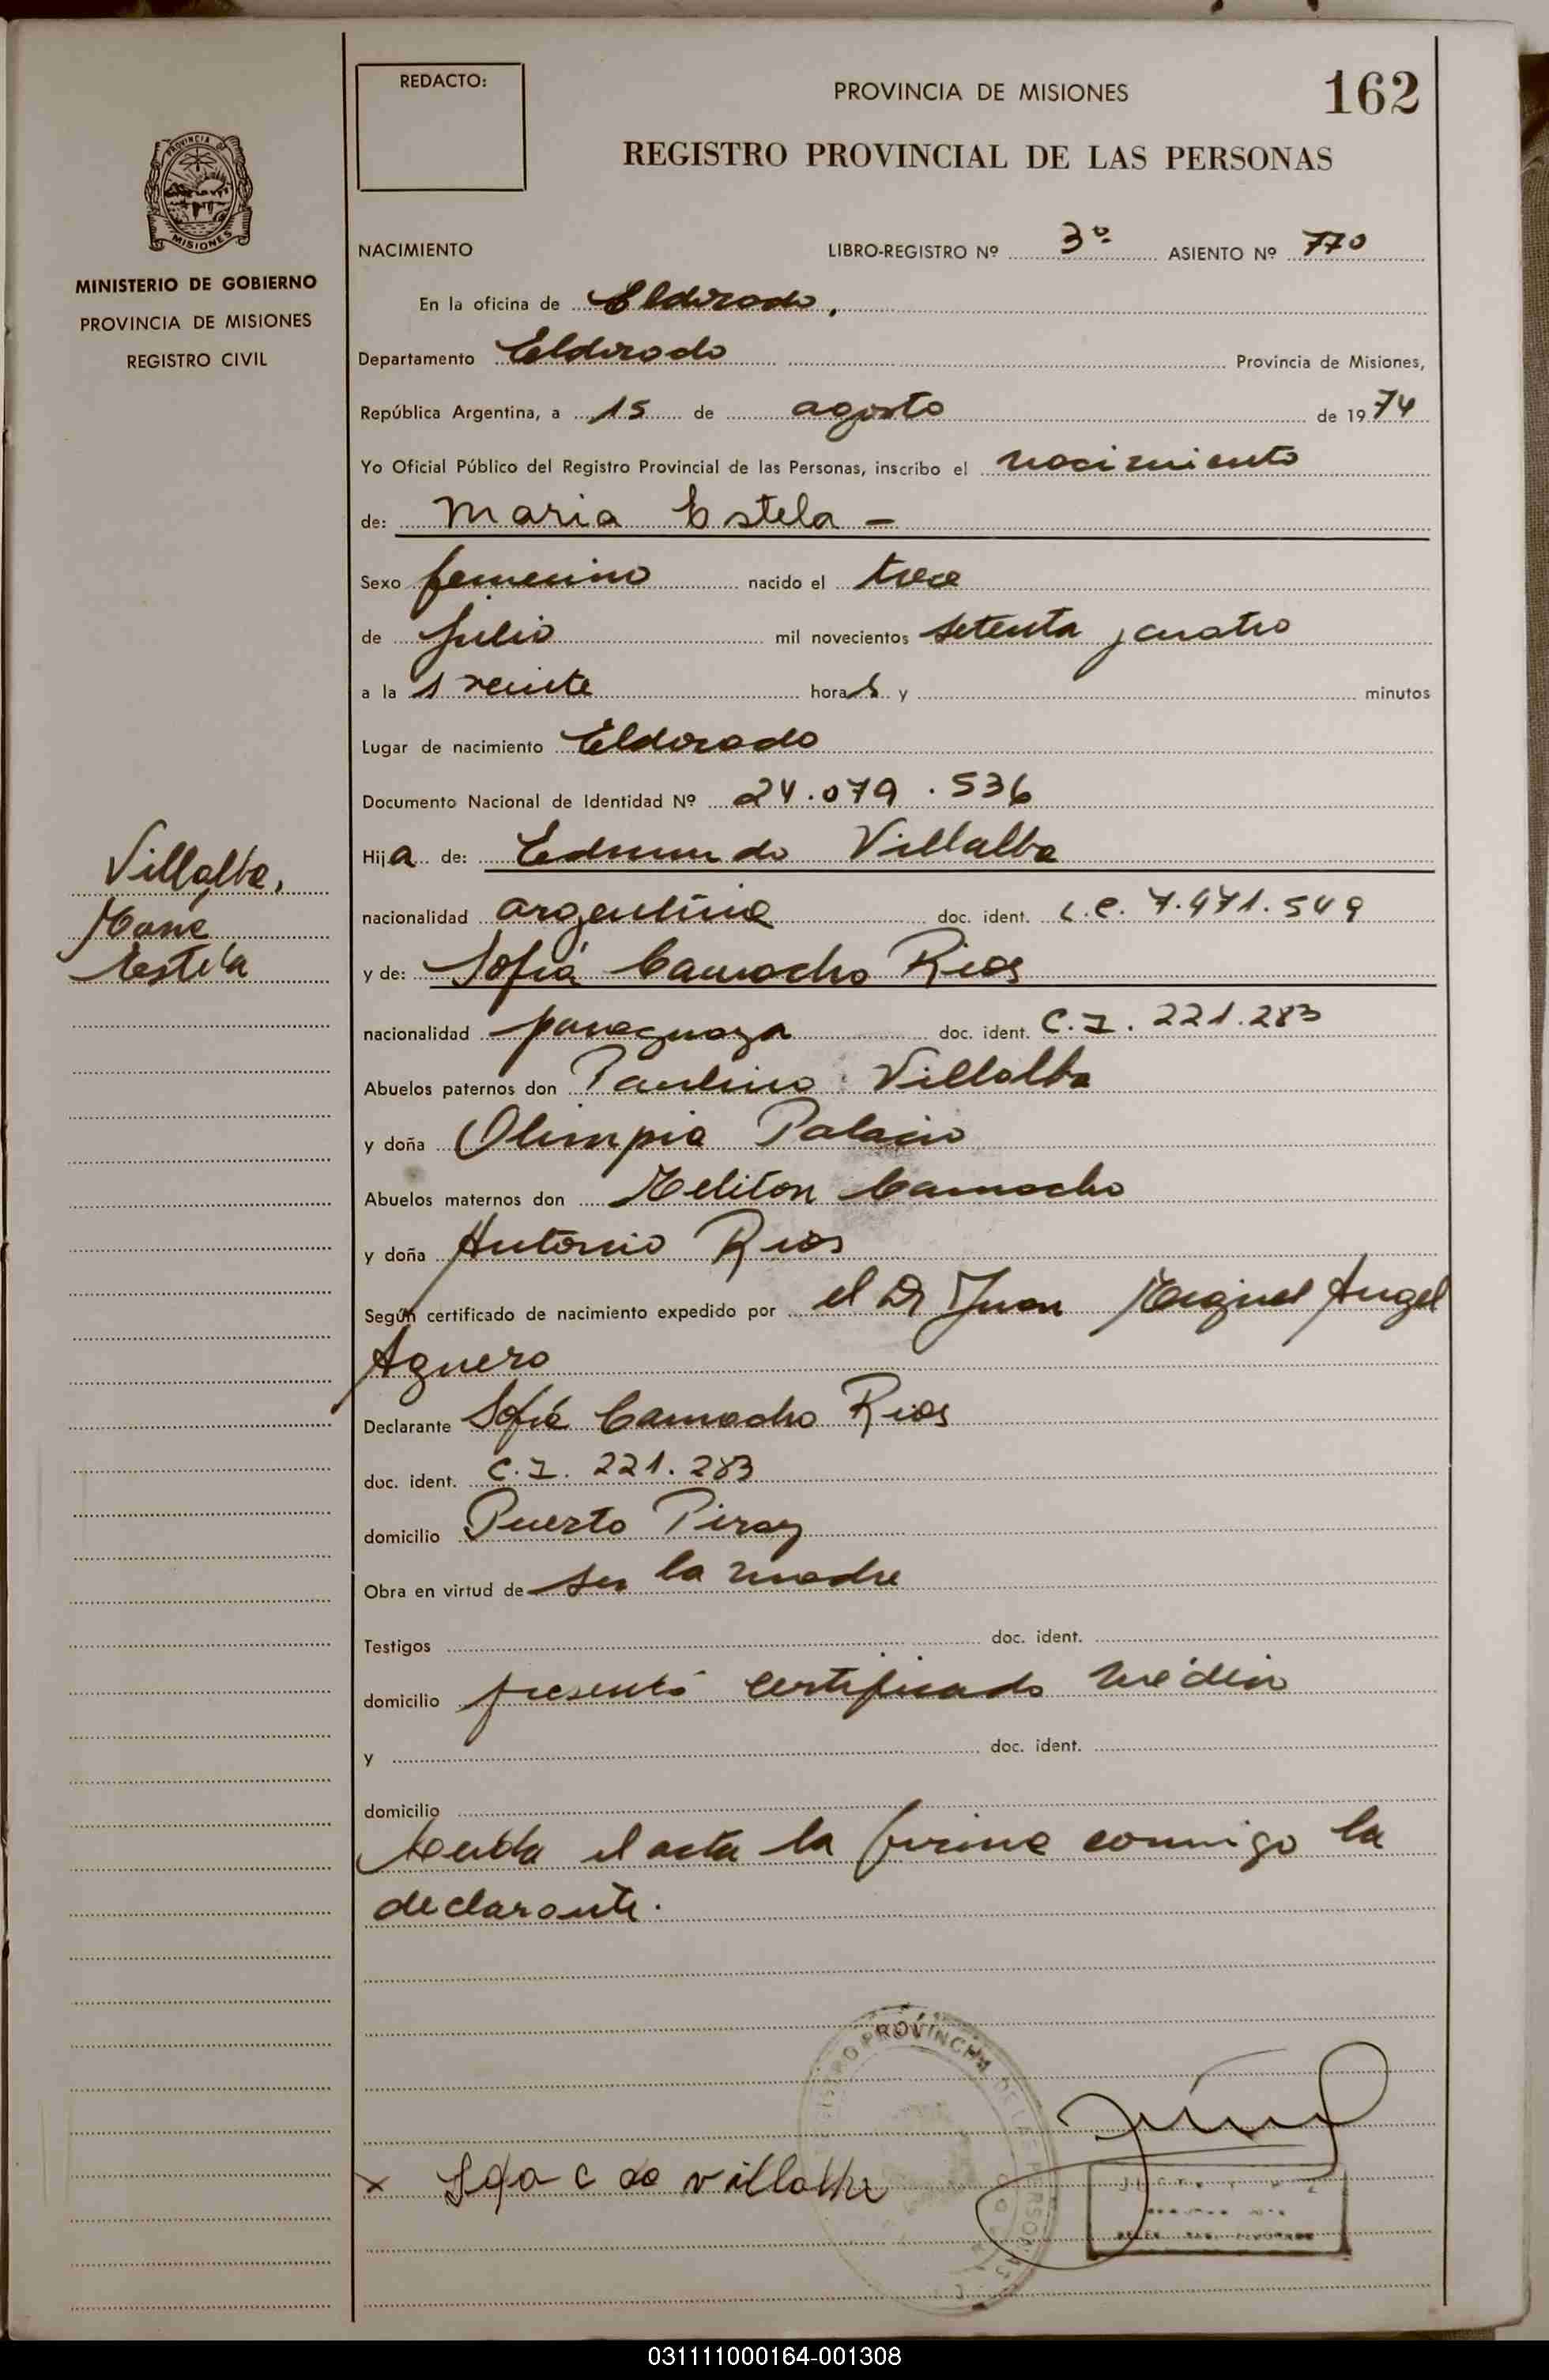 REDACTO:
PROVINCIA DE MISIONES
162
REGISTRO PROVINCIAL DE LAS PERSONAS
PROVINCIA DE
MISIONES
MINISTERIO DE GOBIERNO
PROVINCIA DE MISIONES
REGISTRO CIVIL
NACIMIENTO LIBRO-REGISTRO Nº 3º ASIENTO Nº 770
En la oficina de Eldorado,
Departamento Eldorado Provincia de Misiones,
República Argentina, a 15 de agosto de 1974
Yo Oficial Público del Registro Provincial de las Personas, inscribo el nacimiento
de: Maria Estela -
Sexo femenino nacido el trece
de julio mil novecientos setenta y cuatro
a las veinte horas y minutos
Lugar de nacimiento Eldorado
Documento Nacional de Identidad Nº 24.079.536
Hija de: Edmundo Villalba
nacionalidad argentina doc. ident. L.E. 7.471.549
y de: Sofia Camacho Rios
nacionalidad paraguaya doc. ident. C.I. 221.283
Abuelos paternos don Paulino Villalba
y doña Olimpia Palacio
Abuelos maternos don Meliton Camacho
y doña Antonia Rios
Según certificado de nacimiento expedido por el Dr Juan Miguel Angel
Aguero
Declarante Sofia Camacho Rios
doc. ident. C.I. 221.283
domicilio Puerto Piray
Obra en virtud de ser la madre
Testigos doc. ident.
domicilio presentó certificado médico
y doc. ident.
domicilio
Leida el acta la firma conmigo la
declarante.
Villalba,
Maria
Estela
REGISTRO PROVINCIAL DE LAS PERSONAS
x Sofia C de Villalba
031111000164-001308